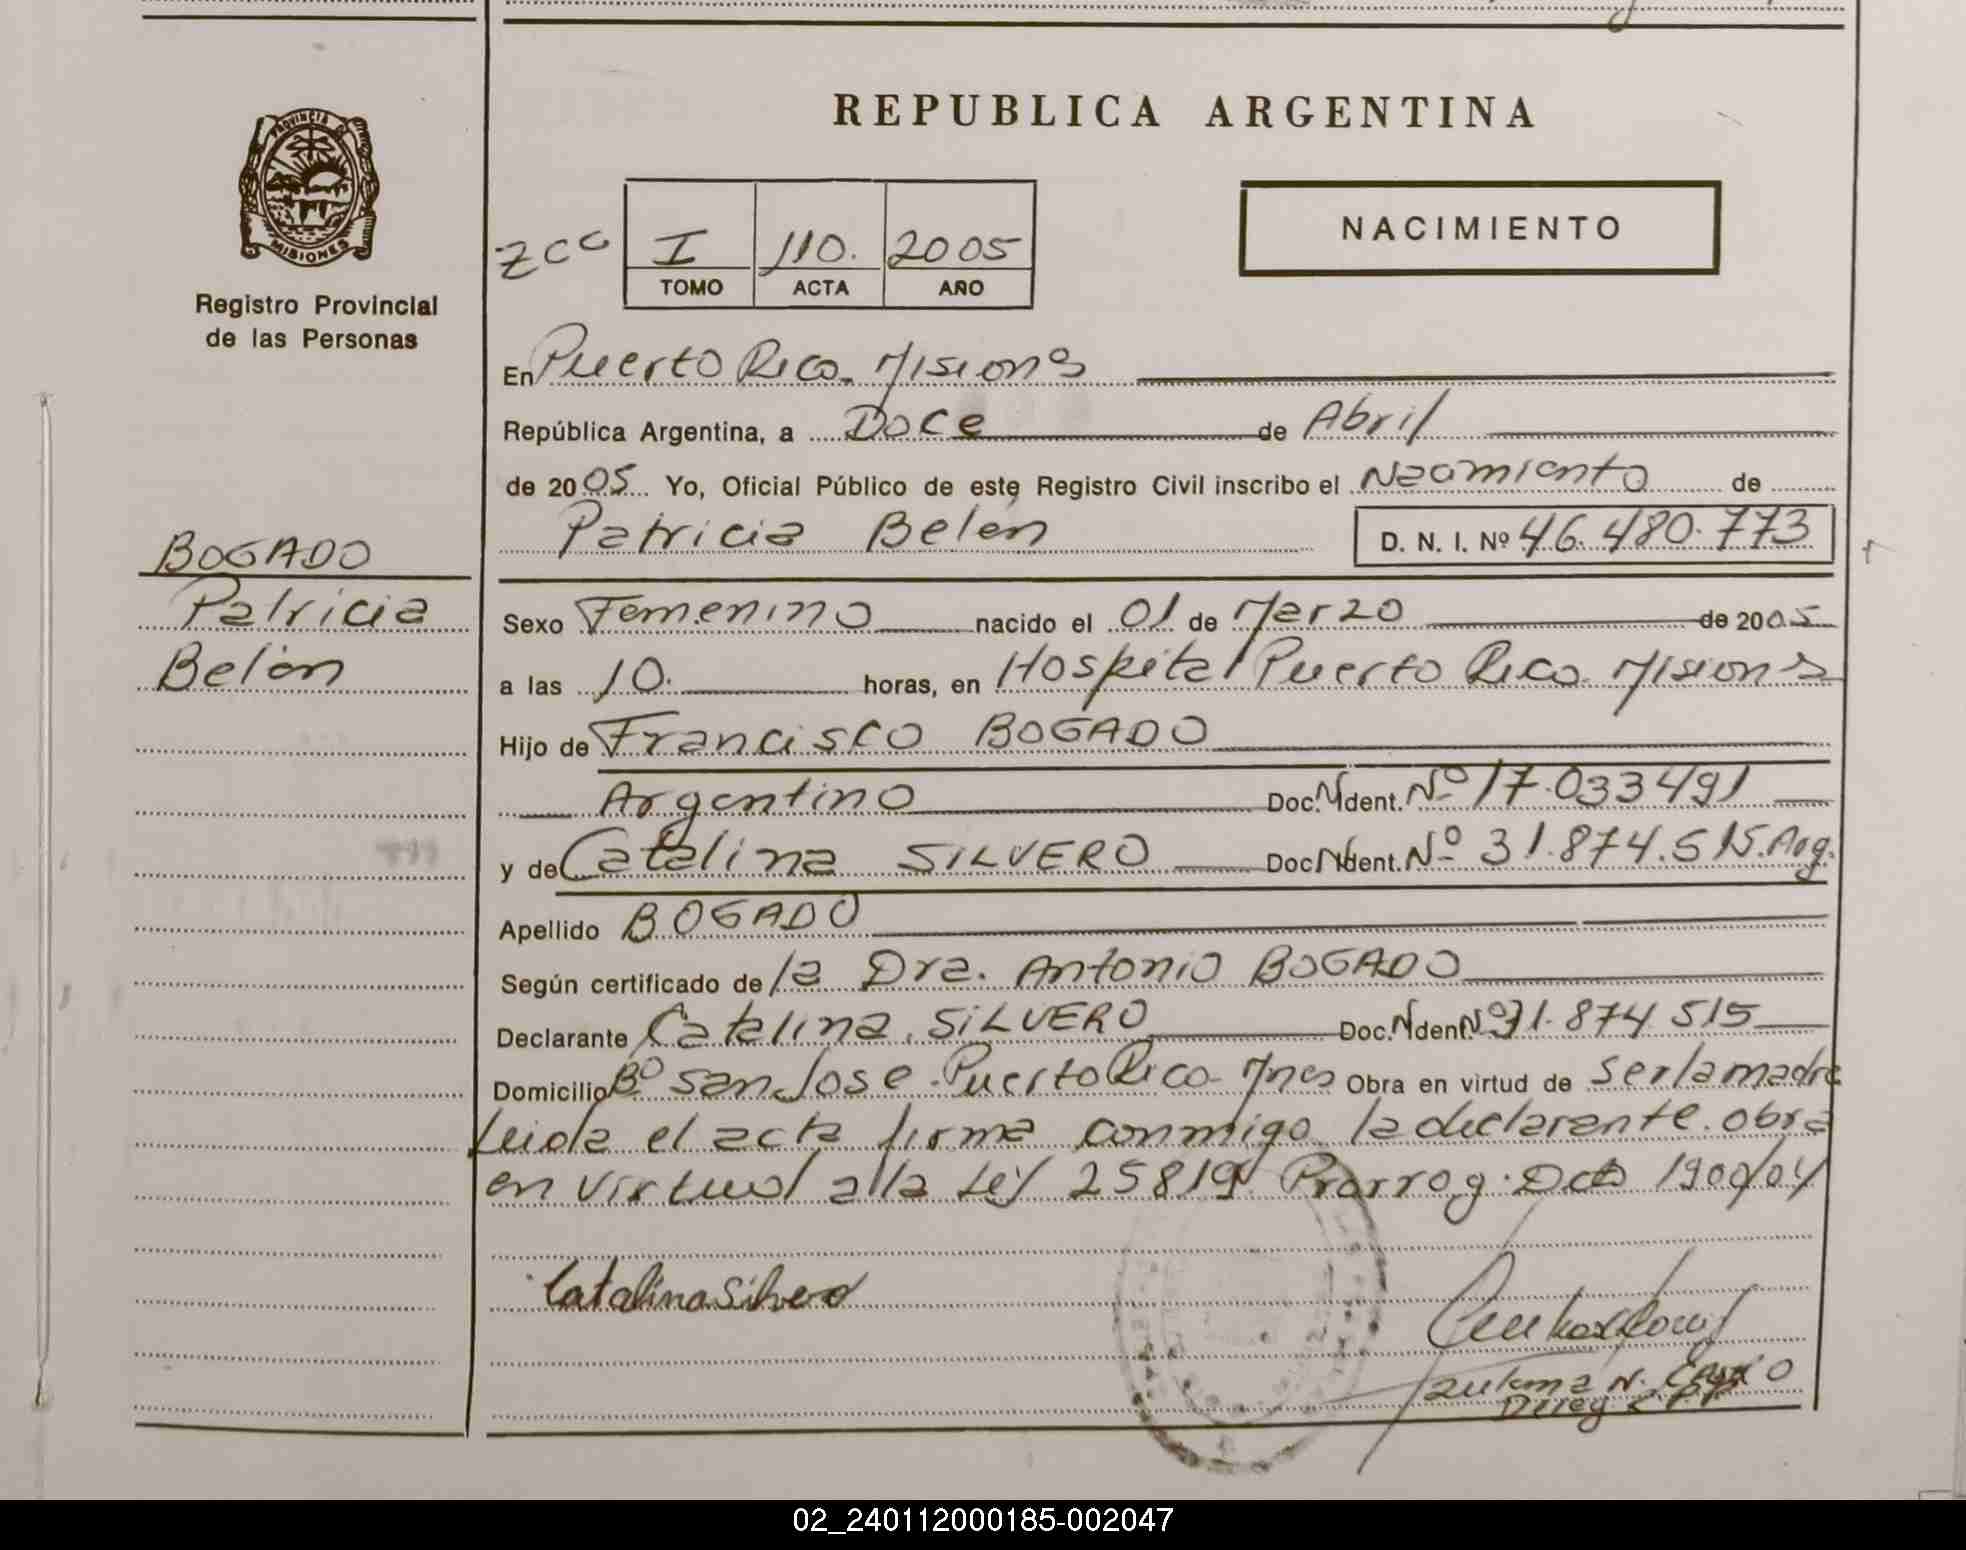 REPUBLICA ARGENTINA
PROVINCIA DE
MISIONES
Registro Provincial
de las Personas
I 110. 2005
TOMO ACTA AÑO
NACIMIENTO
En Puerto Rico. Misions
República Argentina, a Doce de Abril
de 2005 Yo, Oficial Público de este Registro Civil inscribo el Nacimiento de
Patricia Belen D. N. I. Nº 46.480.773
BOGADO
Patricia
Belen
Sexo Femenino nacido el 01 de Marzo de 2005
a las 10. horas, en Hospital Puerto Rico. Misions
Hijo de Francisco BOGADO
Argentino Doc. Ident. Nº 17.033491
y de Catalina SILVERO Doc. Ident. Nº 31.874.515. Arg.
Apellido BOGADO
Según certificado de la Dra. Antonio BOGADO
Declarante Catalina SILVERO Doc. Ident. Nº 31.874515
Domicilio Bº San Jose. Puerto Rico- Mnes Obra en virtud de ser la madre
Leida el acta firma conmigo la declarante. obra
en virtud a la Ley 25819. Prorrog. Dcto 1900/04
Catalina Silvero
02_240112000185-002047